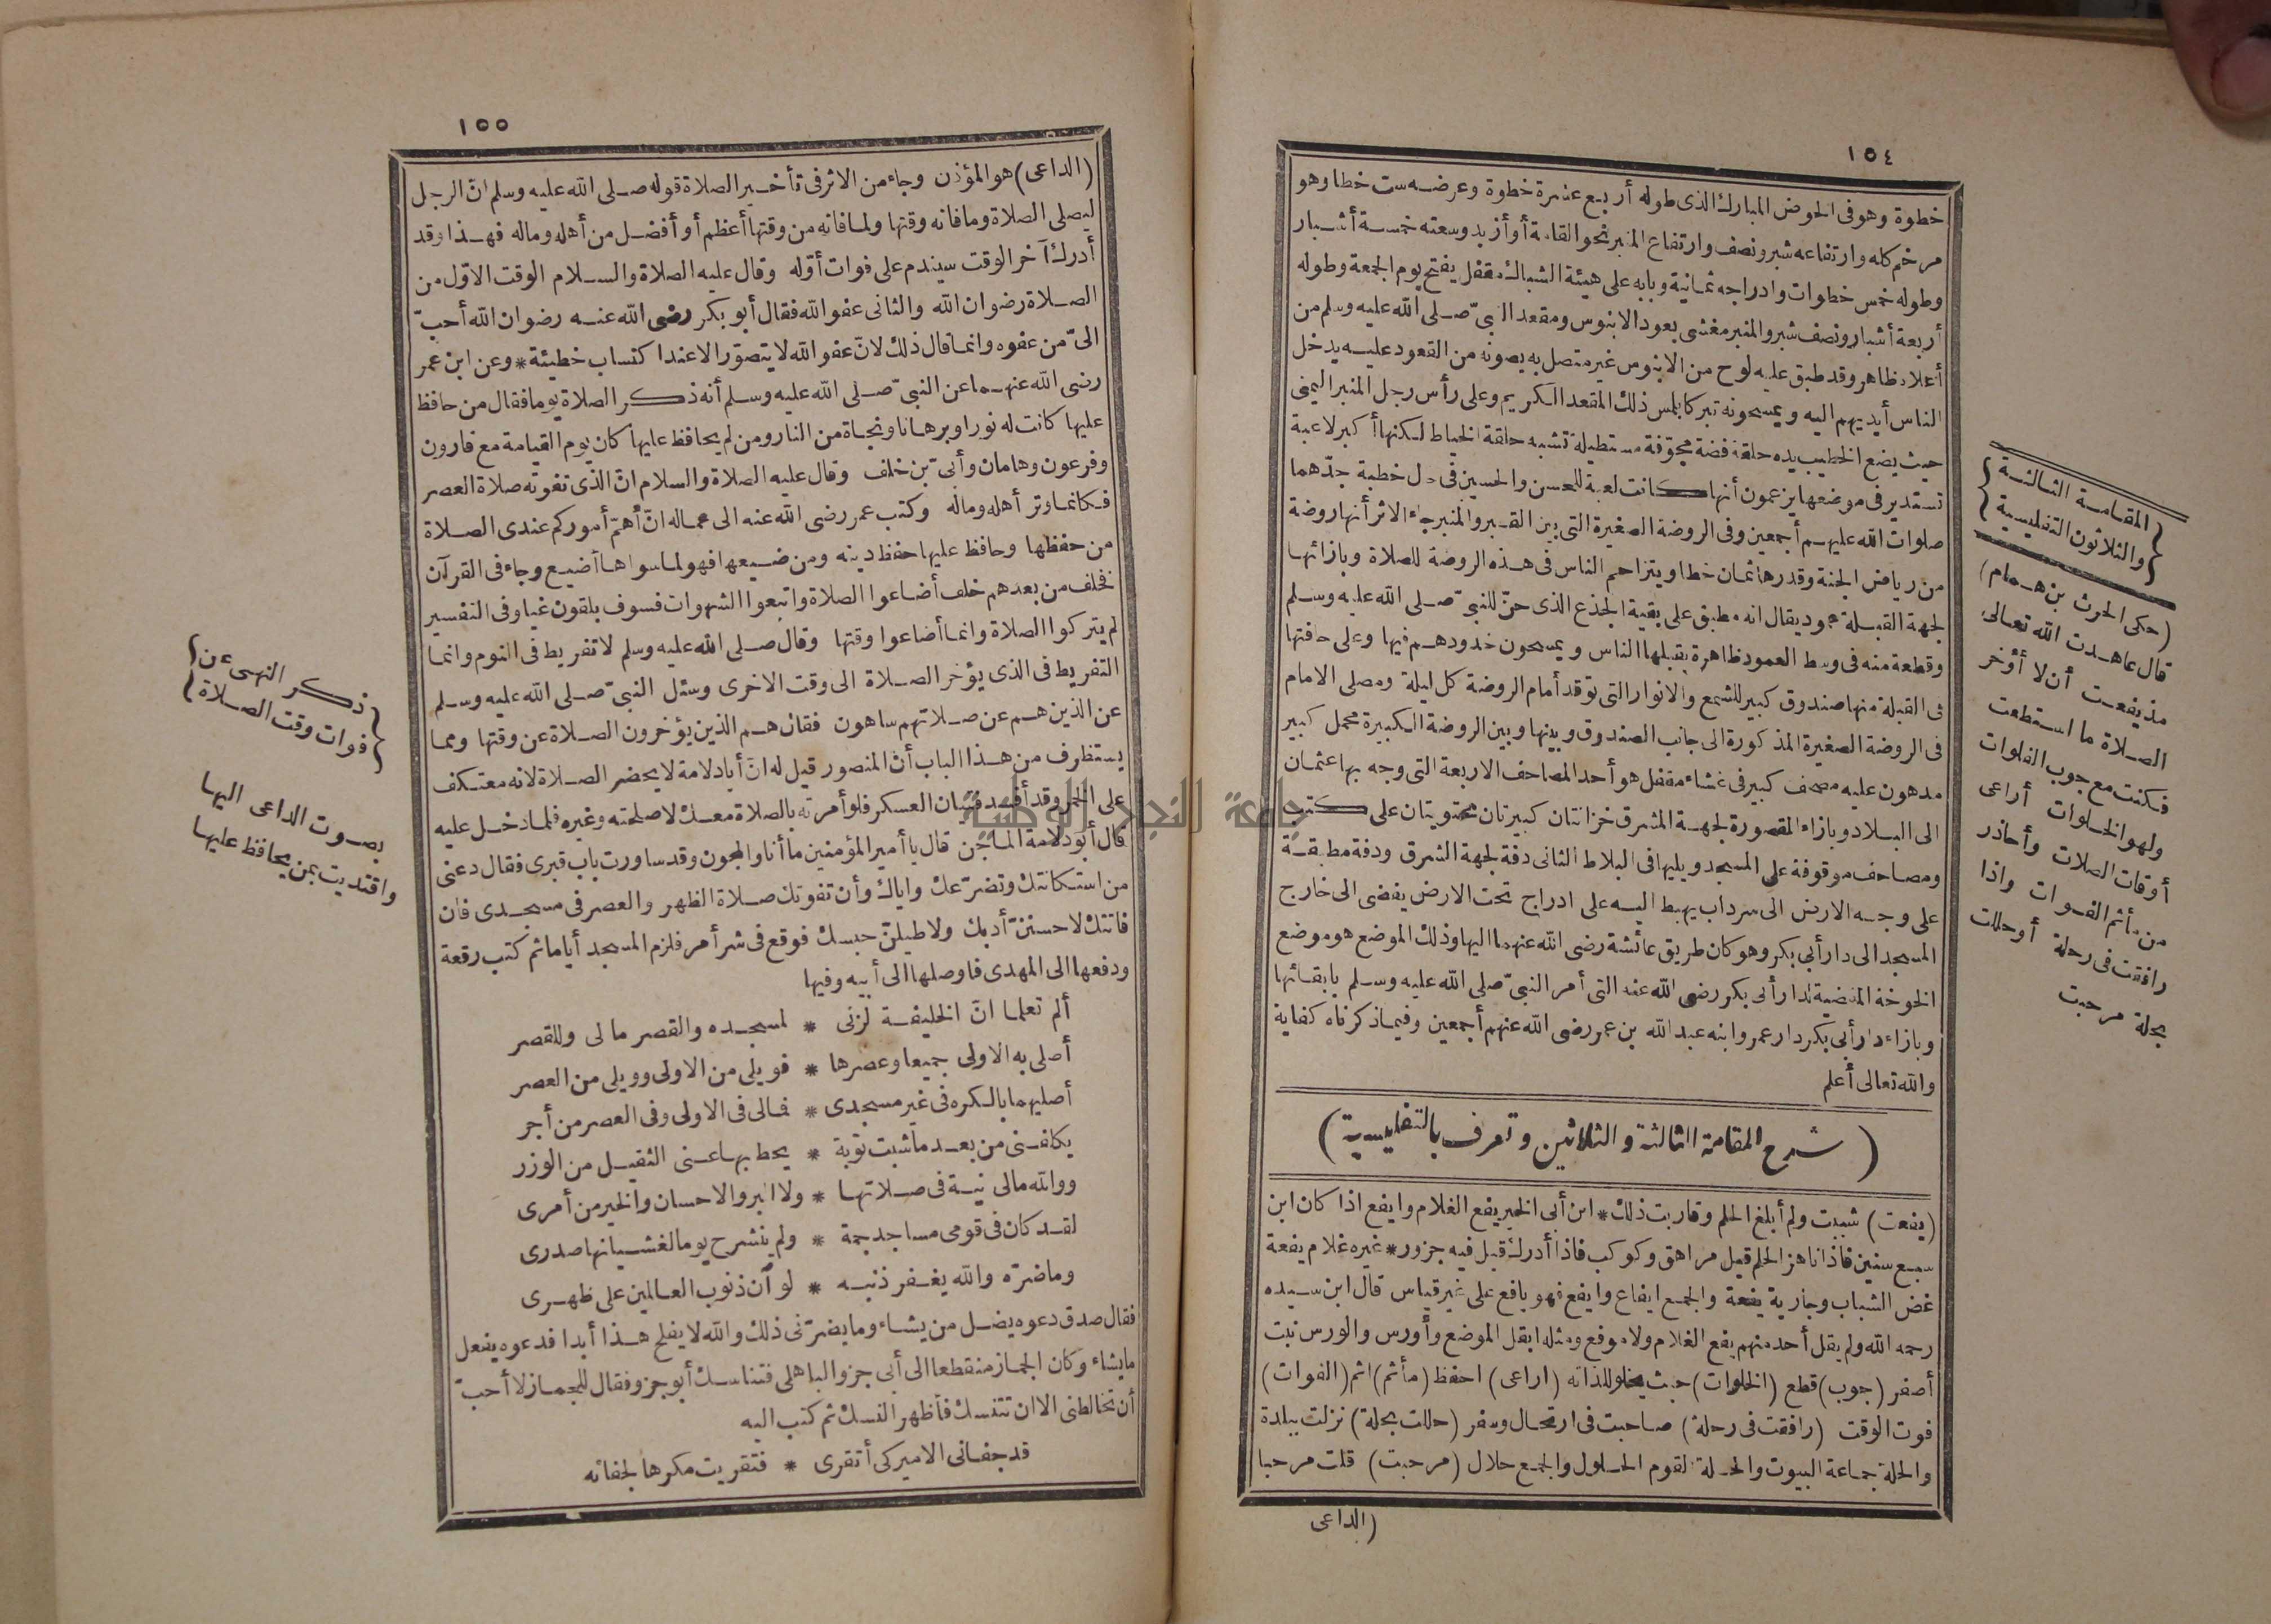 ١٥٤
خطوة وهو فى الحوض المبارك الذى طوله أربع عشرة خطوة وعرضه ست خطا وهو
مرخم كله وارتفاعه شبر ونصف وارتفاع المنبر نحو القامة أو أزيد وسعته خمسة أشبار
وطوله خمس خطوات وادراجه ثمانية وبابه على هيئة الشباك مقفل يفتح يوم الجمعة وطوله
أربعة أشبار ونصف شبر والمنبر مغشى بعود الابنوس ومقعد النبىّ صلى الله عليه وسلم من
أعلاه ظاهر وقد طبق عليه لوح من الابنوس غير متصل به يصونه من القعود عليه يدخل
الناس أيديهم اليه ويمسحونه تبركا بلمس ذلك المقعد الكريم وعلى رأس رجل المنبر اليمنى
حيث يضع الخطيب يده حلقة فضة مجوّفة مستطيلة تشبه حلقة الخياط لكنها أكبر لاعبة
تستدير فى موضعها يزعمون أنها كانت لعبة للحسن والحسين فى حال خطبة جدّهما
صلوات الله عليهم أجمعين وفى الروضة الصغيرة التى بين القبر والمنبر جاء الاثر أنها روضة
من رياض الجنة وقدرها ثمان خطا ويتزاحم الناس فى هذه الروضة للصلاة وبازائها
لجهة القبلة عمود يقال انه مطبق على بقية الجذع الذى حنّ للنبىّ صلى الله عليه وسلم
وقطعة منه فى وسط العمود ظاهرة يقبلها الناس ويمسحون خدودهم فيها وعلى حافتها
فى القبلة منها صندوق كبير للشمع والانوار التى توقد أمام الروضة كل ليلة ومصلى الامام
فى الروضة الصغيرة المذكورة الى جانب الصندوق وبينها وبين الروضة الكبيرة محمل كبير
مدهون عليه مصحف كبير فى غشاء مقفل هو أحد المصاحف الاربعة التى وجه بها عثمان
الى البلاد وبازاء المقصورة لجهة المشرق خزانتان كبيرتان محتويتان على كتب
ومصاحف موقوفة على المسجد ويليها فى البلاط الثانى دفة لجهة الشرق ودفة مطبقة
على وجه الارض الى سرداب يهبط اليه على ادراج تحت الارض يفضى الى خارج
المسجد الى دار أبى بكر وهو كان طريق عائشة رضى الله عنهما اليها وذلك الموضع هو موضع
الخوخة المفضية لدار أبى بكر رضى الله عنه التى أمر النبىّ صلى الله عليه وسلم بابقائها
وبازاء دار أبى بكر دار عمر وابنه عبد الله بن عمر رضى الله عنهم أجمعين وفيما ذكرناه كفاية
والله تعالى أعلم
(شرح المقامة الثالثة والثلاثين وتعرف بالتفليسية)
(يفعت) شببت ولم أبلغ الحلم وقاربت ذلك * ابن أبى الخير يفع الغلام وايفع اذا كان ابن
سبع سنين فاذا ناهز الحلم قيل مراهق وكوكب فاذا أدرك قيل فيه جزور * غيره غلام يفعة
غض الشباب وجارية يفعة والجمع ايفاع وايفع فهو يافع على غير قياس قال ابن سيده
رحمه الله ولم يقل أحد منهم يفع الغلام ولا موفع ومثله ابقل الموضع وأورس والورس نبت
أصفر (جوب) قطع (الخلوات) حيث يخلو للذاته (اراعى) احفظ (مأثم) اثم (الفوات)
فوت الوقت (رافقت فى رحلة) صاحبت فى ارتحال وسفر (حللت بحلة) نزلت ببلدة
والحلة جماعة البيوت والحلة القوم الحلول والجمع حلال (مرحبت) قلت مرحبا
(الداعى
المقامة الثالثة
والثلاثون التفليسية
(حكى الحرث بن همام)
قال عاهدت الله تعالى
مذ يفعت أن لا أؤخر
الصلاة ما استطعت
فكنت مع جوب الفلوات
ولهو الخلوات أراعى
أوقات الصلات وأحاذر
من مأثم الفوات واذا
رافقت فى رحلة أو حللت
بحلة مرحبت
١٥٥
(الداعى) هو المؤذن وجاء من الاثر فى تأخير الصلاة قوله صلى الله عليه وسلم انّ الرجل
ليصلى الصلاة وما فاته وقتها ولما فاته من وقتها أعظم أو أفضل من أهله وماله فهذا وقد
أدرك آخر الوقت سيندم على فوات أوّله وقال عليه الصلاة والسلام الوقت الاوّل من
الصلاة رضوان الله والثانى عفو الله فقال أبو بكر رضى الله عنه رضوان الله أحبّ
الىّ من عفوه وانما قال ذلك لانّ عفو الله لا يتصوّر الا عند اكتساب خطيئة * وعن ابن عمر
رضى الله عنهما عن النبىّ صلى الله عليه وسلم أنه ذكر الصلاة يوما فقال من حافظ
عليها كانت له نورا وبرهانا ونجاة من النار ومن لم يحافظ عليها كان يوم القيامة مع قارون
وفرعون وهامان وأبىّ بن خلف وقال عليه الصلاة والسلام انّ الذى تفوته صلاة العصر
فكانما وتر أهله وماله وكتب عمر رضى الله عنه الى عماله انّ أهمّ أموركم عندى الصلاة
من حفظها وحافظ عليها حفظ دينه ومن ضيعها فهو لما سواها أضيع وجاء فى القرآن
نخلف من بعدهم خلف أضاعوا الصلاة واتبعوا الشهوات فسوف يلقون غيا وفى التفسير
لم يتركوا الصلاة وانما أضاعوا وقتها وقال صلى الله عليه وسلم لا تفريط فى النوم وانما
التفريط فى الذى يؤخر الصلاة الى وقت الاخرى وسئل النبىّ صلى الله عليه وسلم
عن الذين هم عن صلاتهم ساهون فقال هم الذين يؤخرون الصلاة عن وقتها ومما
يستظرف من هذا الباب أنّ المنصور قيل له انّ أبا دلامة لا يحضر الصلاة لانه معتكف
على الخمر وقد أفسد فتيان العسكر فلو أمرته بالصلاة معك لاصلحته وغيره فلما دخل عليه
قال أبو دلامة الماجن قال يا أمير المؤمنين ما أنا والمجون وقد ساورت باب قبرى فقال دعنى
من استكانتك وتضرّعك واياك وأن تفوتك صلاة الظهر والعصر فى مسجدى فان
فاتتك لاحسننّ أدبك ولاطيلنّ حبسك فوقع فى شر أمر فلزم المسجد أياما ثم كتب رقعة
ودفعها الى المهدى فاوصلها الى أبيه وفيها
ألم تعلما انّ الخليفة لزنى * لمسجده والقصر ما لى وللقصر
أصلى به الاولى جميعا وعصرها * فويلى من الاولى وويلى من العصر
أصليهما بالكره فى غير مسجدى * فمالى فى الاولى وفى العصر من أجر
يكلفنى من بعد ما شبت توبة * يحط بها عنى الثقيل من الوزر
ووالله مالى نية فى صلاتها * ولا البر والاحسان والخير من أمرى
لقد كان فى قومى مساجد جمة * ولم ينشرح يوما لغشيانها صدرى
وما ضرّه والله يغفر ذنبه * لو أن ذنوب العالمين على ظهرى
فقال صدق دعوه يضل من يشاء وما يضرّنى ذلك والله لا يفلح هذا أبدا فدعوه يفعل
ما يشاء وكان الجماز منقطعا الى أبى جزو الباهلى فتناسك أبو جزو فقال للجماز لا أحبّ
أن تخالطنى الا ان تتنسك فأظهر النسك ثم كتب اليه
قد جفانى الامير كى أتقرى * فتقريت مكرها لجفائه
ذكر النهى عن
فوات وقت الصلاة
بصوت الداعى اليها
واقتديت بمن يحافظ عليها
جامعة النجاح الوطنية